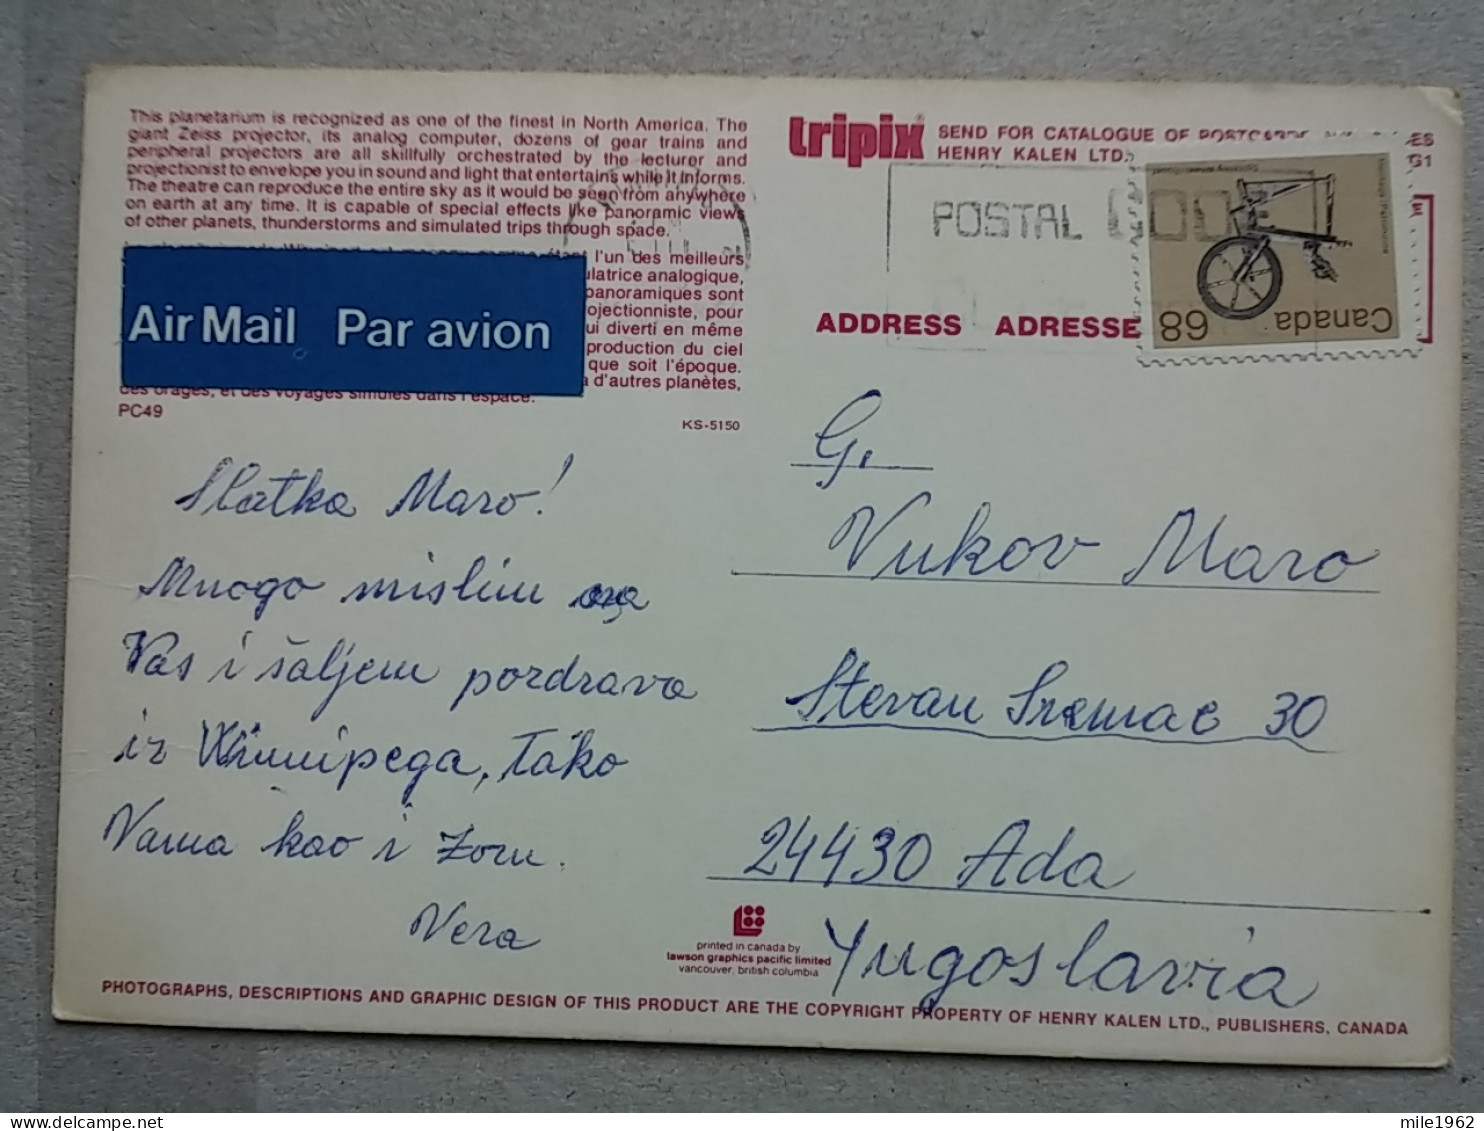 This planetarium is recognized as one of the finest in North America. The
giant Zeiss projector, its analog computer, dozens of gear trains and
peripheral projectors are all skillfully orchestrated by the lecturer and
projectionist to envelope you in sound and light that entertains while it informs.
The theatre can reproduce the entire sky as it would be seen from anywhere
on earth at any time. It is capable of special effects like panoramic views
of other planets, thunderstorms and simulated trips through space.
l'un des meilleurs
ulatrice analogique,
panoramiques sont
ojectionniste, pour
ui diverti en même
production du ciel
que soit l'époque.
a d'autres planètes,
des orages, et des voyages simulés dans l'espace.
PC49
KS-5150
Air Mail Par avion
Slatka Maro!
Mnogo mislim na
Vas i šaljem pozdrava
iz Winnipega, Tako
Vama kao i Zoru.
Vera
tripix
SEND FOR CATALOGUE OF
HENRY KALEN LTD.
ES
G1
POSTAL CODE
Canada
68
ADDRESS ADRESSE
G.
Vukov Maro
Stevan Sremac 30
24430 Ada
Yugoslavia
printed in canada by
lawson graphics pacific limited
vancouver, british columbia
PHOTOGRAPHS, DESCRIPTIONS AND GRAPHIC DESIGN OF THIS PRODUCT ARE THE COPYRIGHT PROPERTY OF HENRY KALEN LTD., PUBLISHERS, CANADA
mile1962